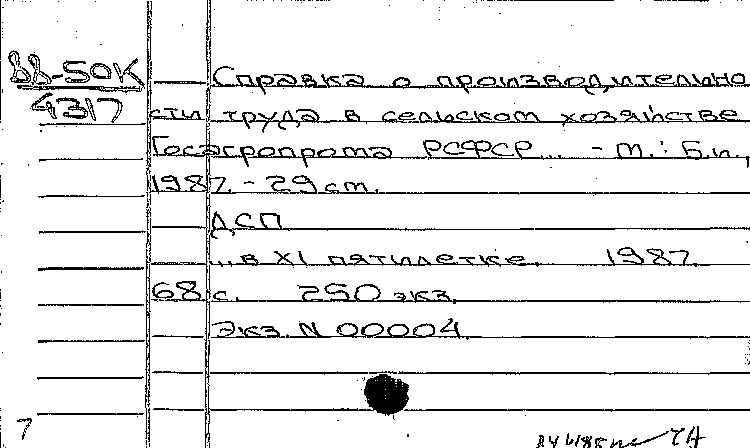 ВВ-50К
4317
Справка о производительно
сти труда в сельском хозяйстве
Госагропрома РСФСР... - М.: Б.и.,
1987. - 29 см.
ДСП
...в XI пятилетке. 1987.
68 с. 250 экз.
Экз. N 00004.
7